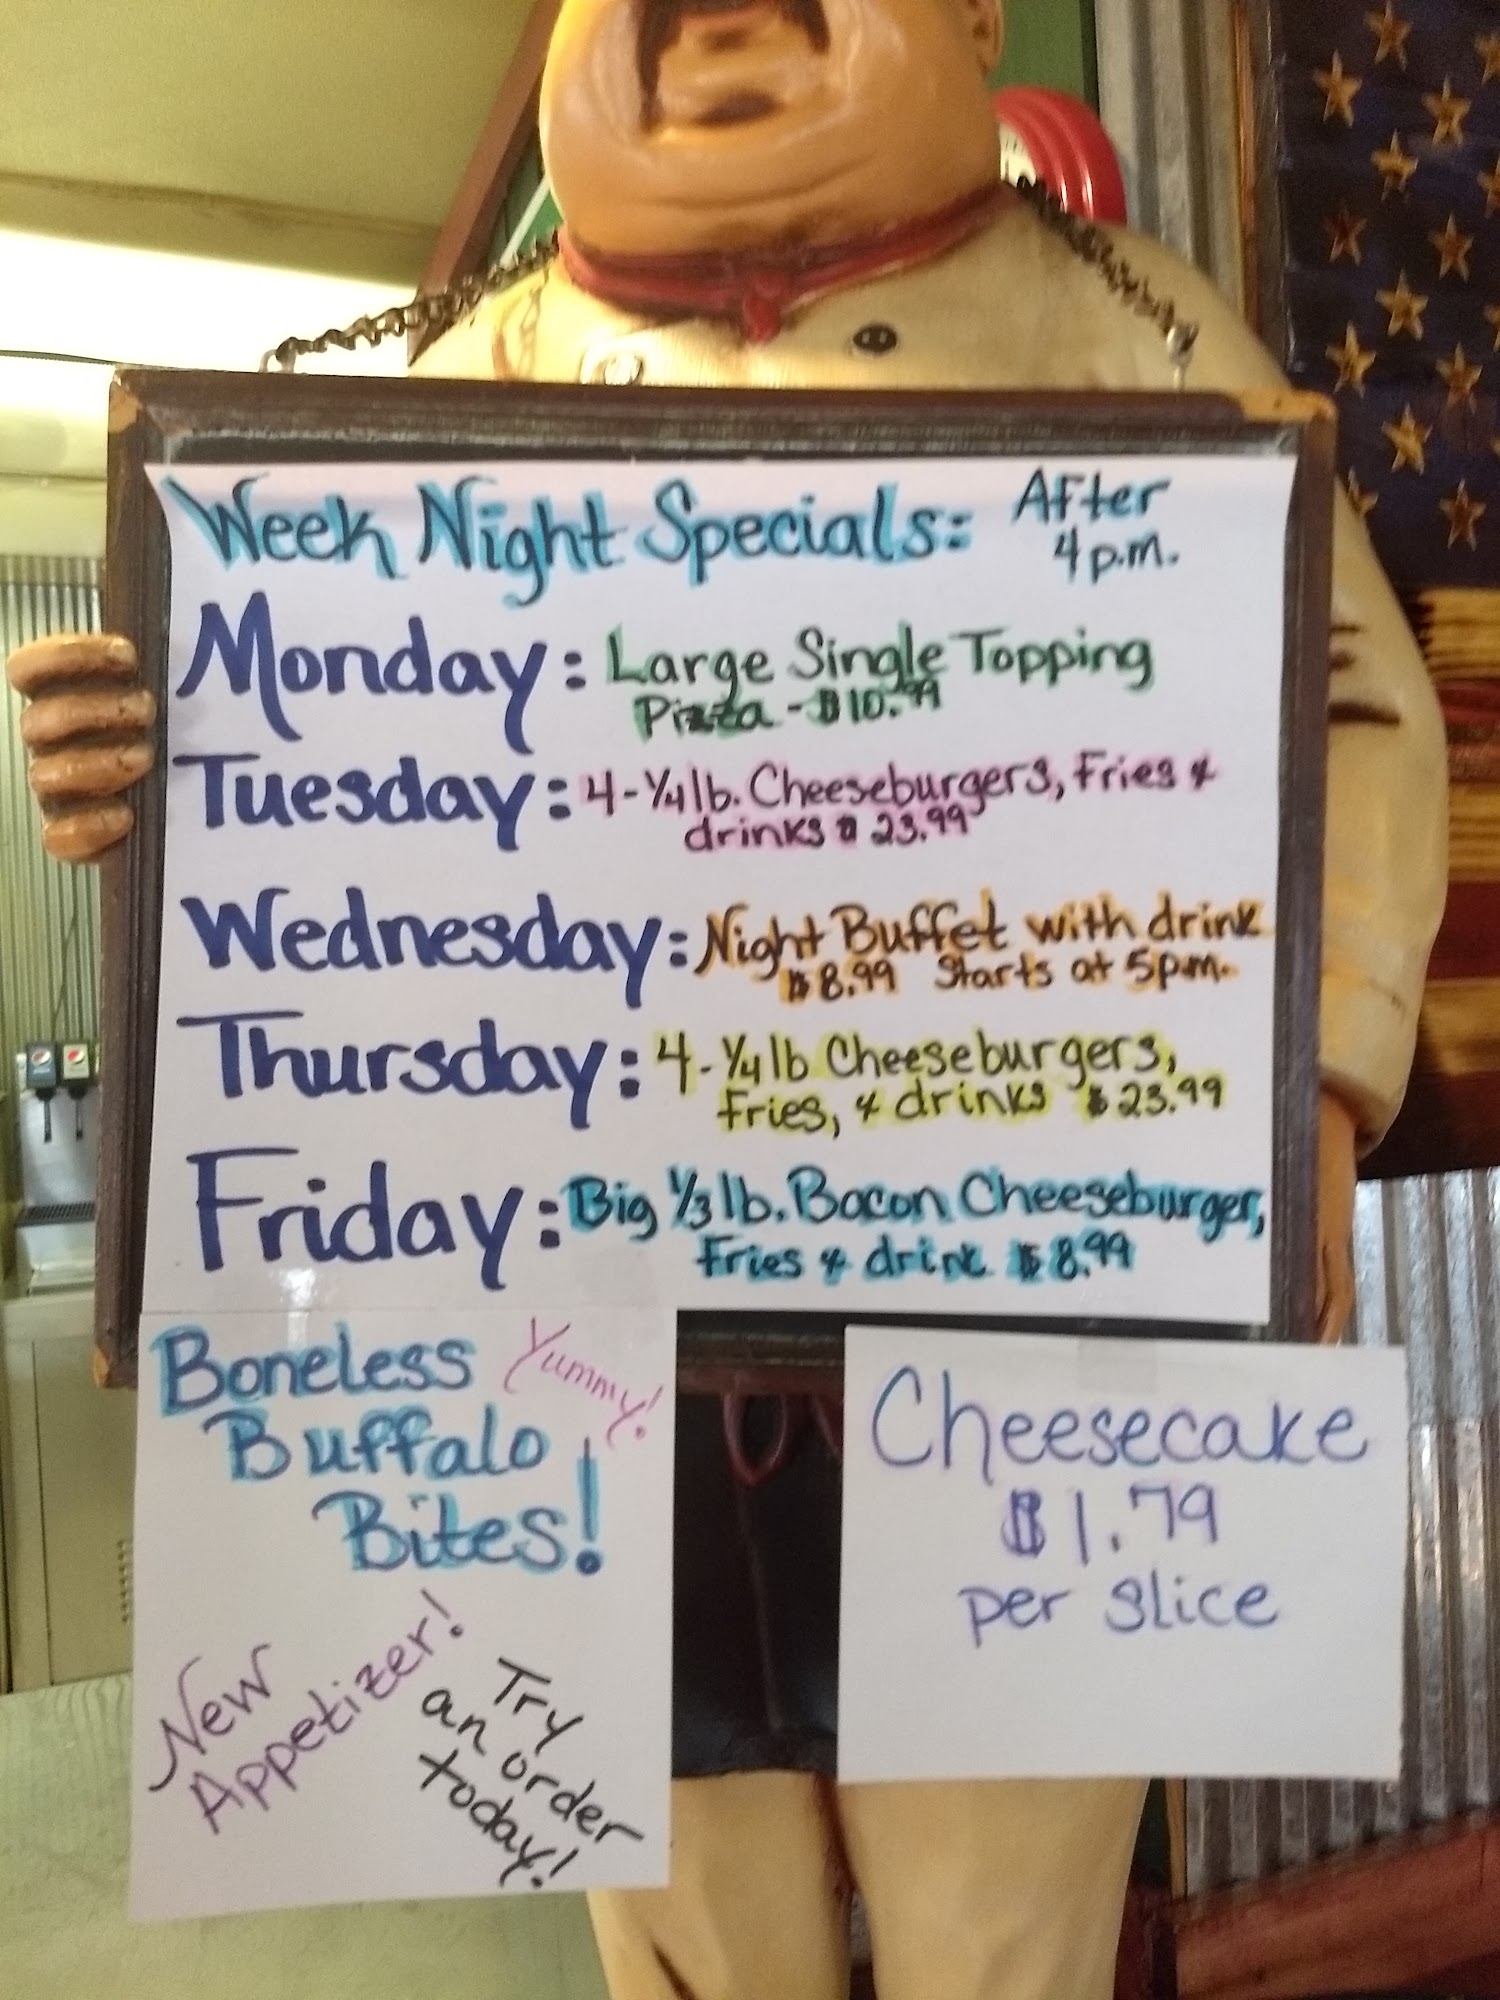 Week Night Specials: After
4 p.m.
Monday: Large Single Topping
Pizza - $10.99
Tuesday: 4-1/4 lb. Cheeseburgers, Fries &
drinks $23.99
Wednesday: Night Buffet with drink
$8.99 Starts at 5p.m.
Thursday: 4-1/4 lb Cheeseburgers,
Fries, & drinks $23.99
Friday: Big 1/3 lb. Bacon Cheeseburger,
Fries & drink $8.99
Boneless
Buffalo
Bites!
Yummy!
New
Appetizer!
Try
an order
today!
Cheesecake
$1.79
per slice